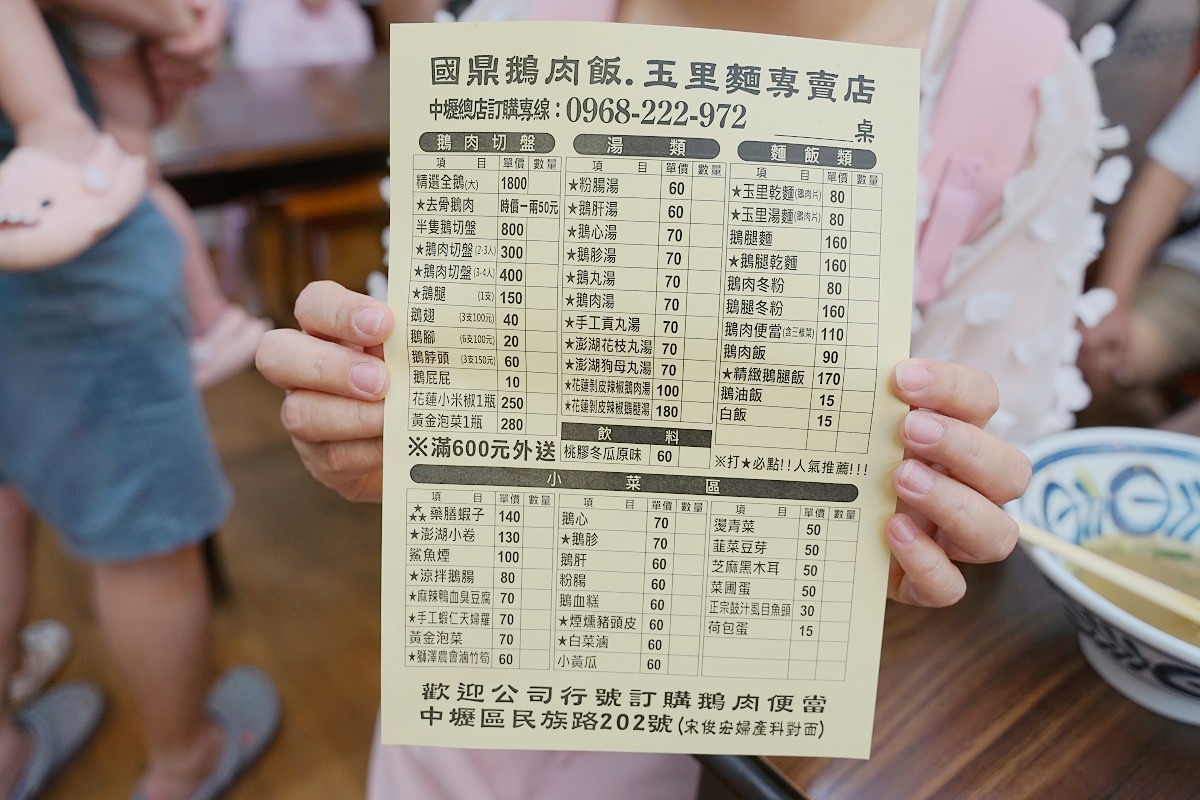 國鼎鵝肉飯.玉里麵專賣店
中壢總店訂購專線：0968-222-972 ______桌
鵝肉切盤
項 目 單價 數量
精選全鵝(大) 1800
★去骨鵝肉 時價一兩50元
半隻鵝切盤 800
★鵝肉切盤(2-3人) 300
★鵝肉切盤(3-4人) 400
★鵝腿 (1支) 150
鵝翅 (3支100元) 40
鵝腳 (6支100元) 20
鵝脖頭 (3支150元) 60
鵝屁屁 10
花蓮小米椒1瓶 250
黃金泡菜1瓶 280
※滿600元外送
湯 類
項 目 單價 數量
★粉腸湯 60
★鵝肝湯 60
★鵝心湯 70
★鵝胗湯 70
★鵝丸湯 70
★鵝肉湯 70
★手工貢丸湯 70
★澎湖花枝丸湯 70
★澎湖狗母丸湯 70
★花蓮剝皮辣椒鵝肉湯 100
★花蓮剝皮辣椒鵝腿湯 180
飲 料
桃膠冬瓜原味 60
麵飯類
項 目 單價 數量
★玉里乾麵(鵝肉片) 80
★玉里湯麵(鵝肉片) 80
鵝腿麵 160
★鵝腿乾麵 160
鵝肉冬粉 80
鵝腿冬粉 160
鵝肉便當(含三樣菜) 110
鵝肉飯 90
★精緻鵝腿飯 170
鵝油飯 15
白飯 15
※打★必點!!人氣推薦!!!
小 菜 區
項 目 單價 數量
★★★藥膳蝦子 140
★澎湖小卷 130
鯊魚煙 100
★涼拌鵝腸 80
★麻辣鴨血臭豆腐 70
★手工蝦仁天婦羅 70
黃金泡菜 70
★獅澤農會滷竹筍 60
項 目 單價 數量
鵝心 70
★鵝胗 70
鵝肝 60
粉腸 60
鵝血糕 60
★煙燻豬頭皮 60
★白菜滷 60
小黃瓜 60
項 目 單價 數量
燙青菜 50
韮菜豆芽 50
芝麻黑木耳 50
菜圃蛋 50
正宗鼓汁虱目魚頭 30
荷包蛋 15
歡迎公司行號訂購鵝肉便當
中壢區民族路202號(宋俊宏婦產科對面)